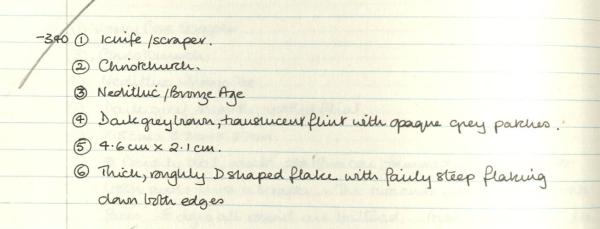 -340 ① Knife/scraper.
② Christchurch.
③ Neolithic/Bronze Age
④ Dark grey brown, translucent flint with opaque grey patches.
⑤ 4.6cm x 2.1cm.
⑥ Thick, roughly D shaped flake with fairly steep flaking
down both edges